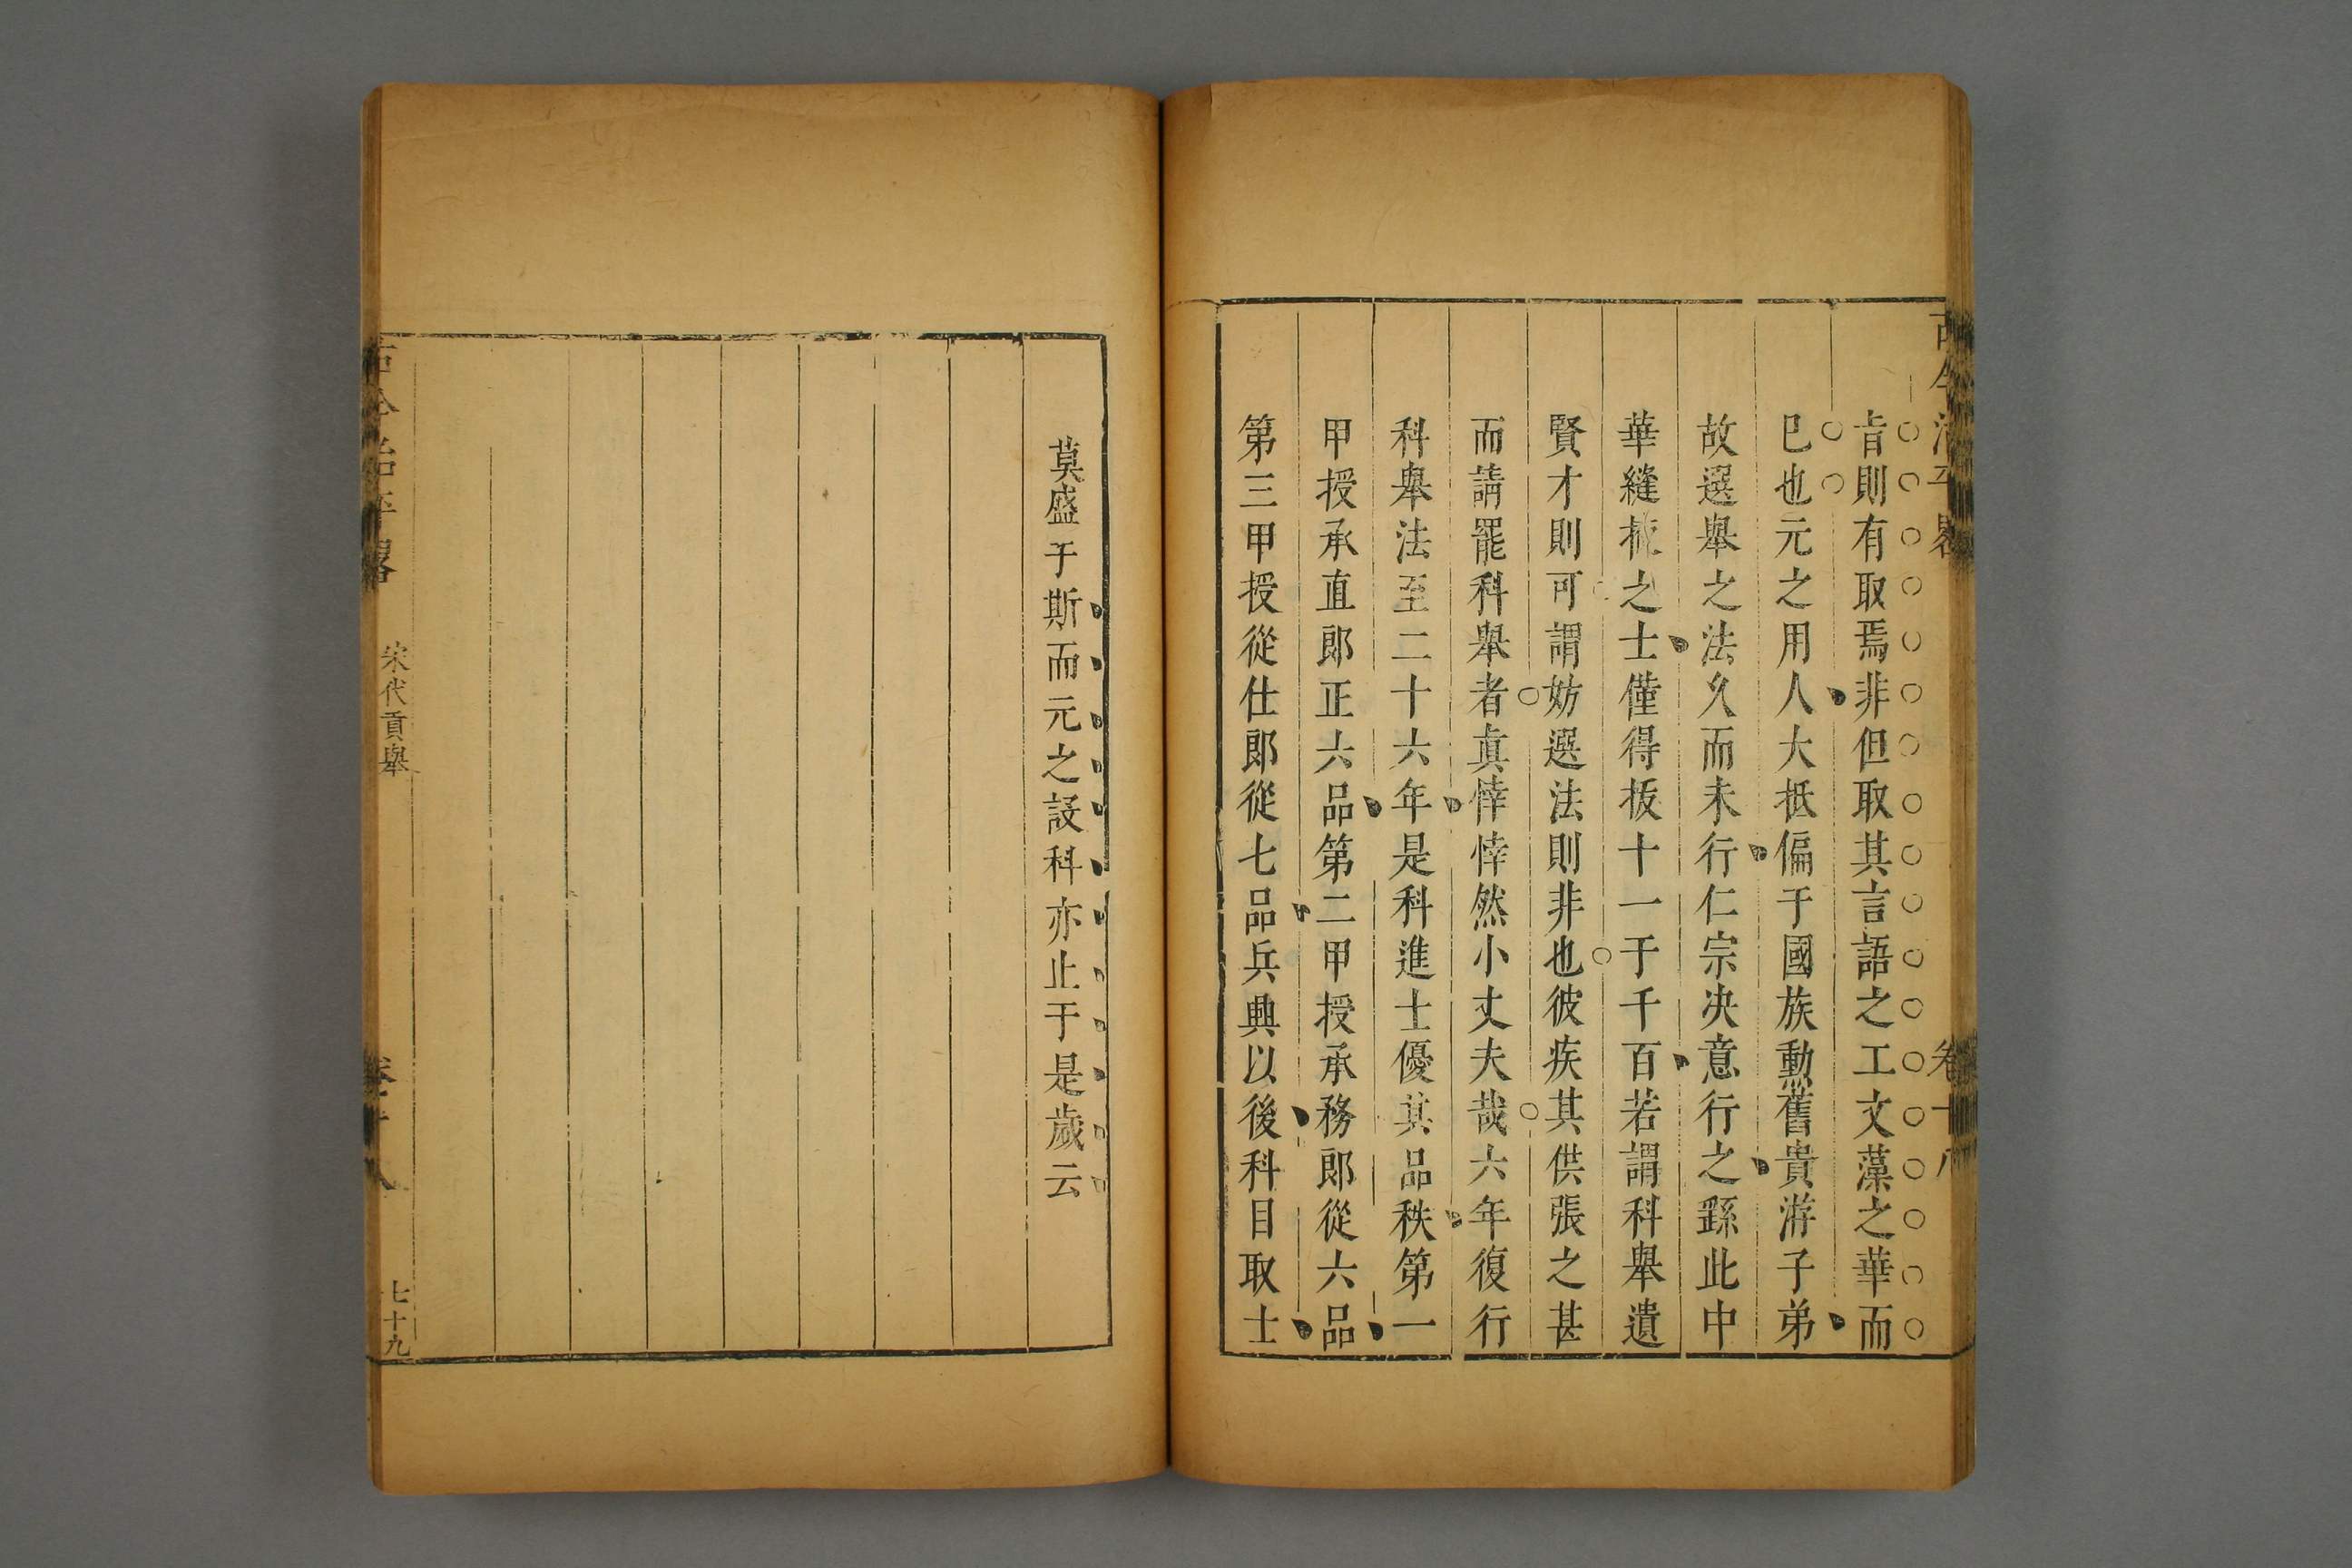 古今治平畧
卷十八
旨則有取焉非但取其言語之工文藻之華而
已也元之用人大抵偏于國族勳舊貴游子弟
故選舉之法久而未行仁宗决意行之繇此中
華縫掖之士僅得拔十一于千百若謂科舉遺
賢才則可謂妨選法則非也彼疾其供張之甚
而請罷科舉者眞悻悻然小丈夫哉六年復行
科舉法至二十六年是科進士優其品秩第一
甲授承直郎正六品第二甲授承務郎從六品
第三甲授從仕郎從七品兵興以後科目取士
莫盛于斯而元之設科亦止于是歲云
古今治平畧
宋代貢舉
卷十八
七十九